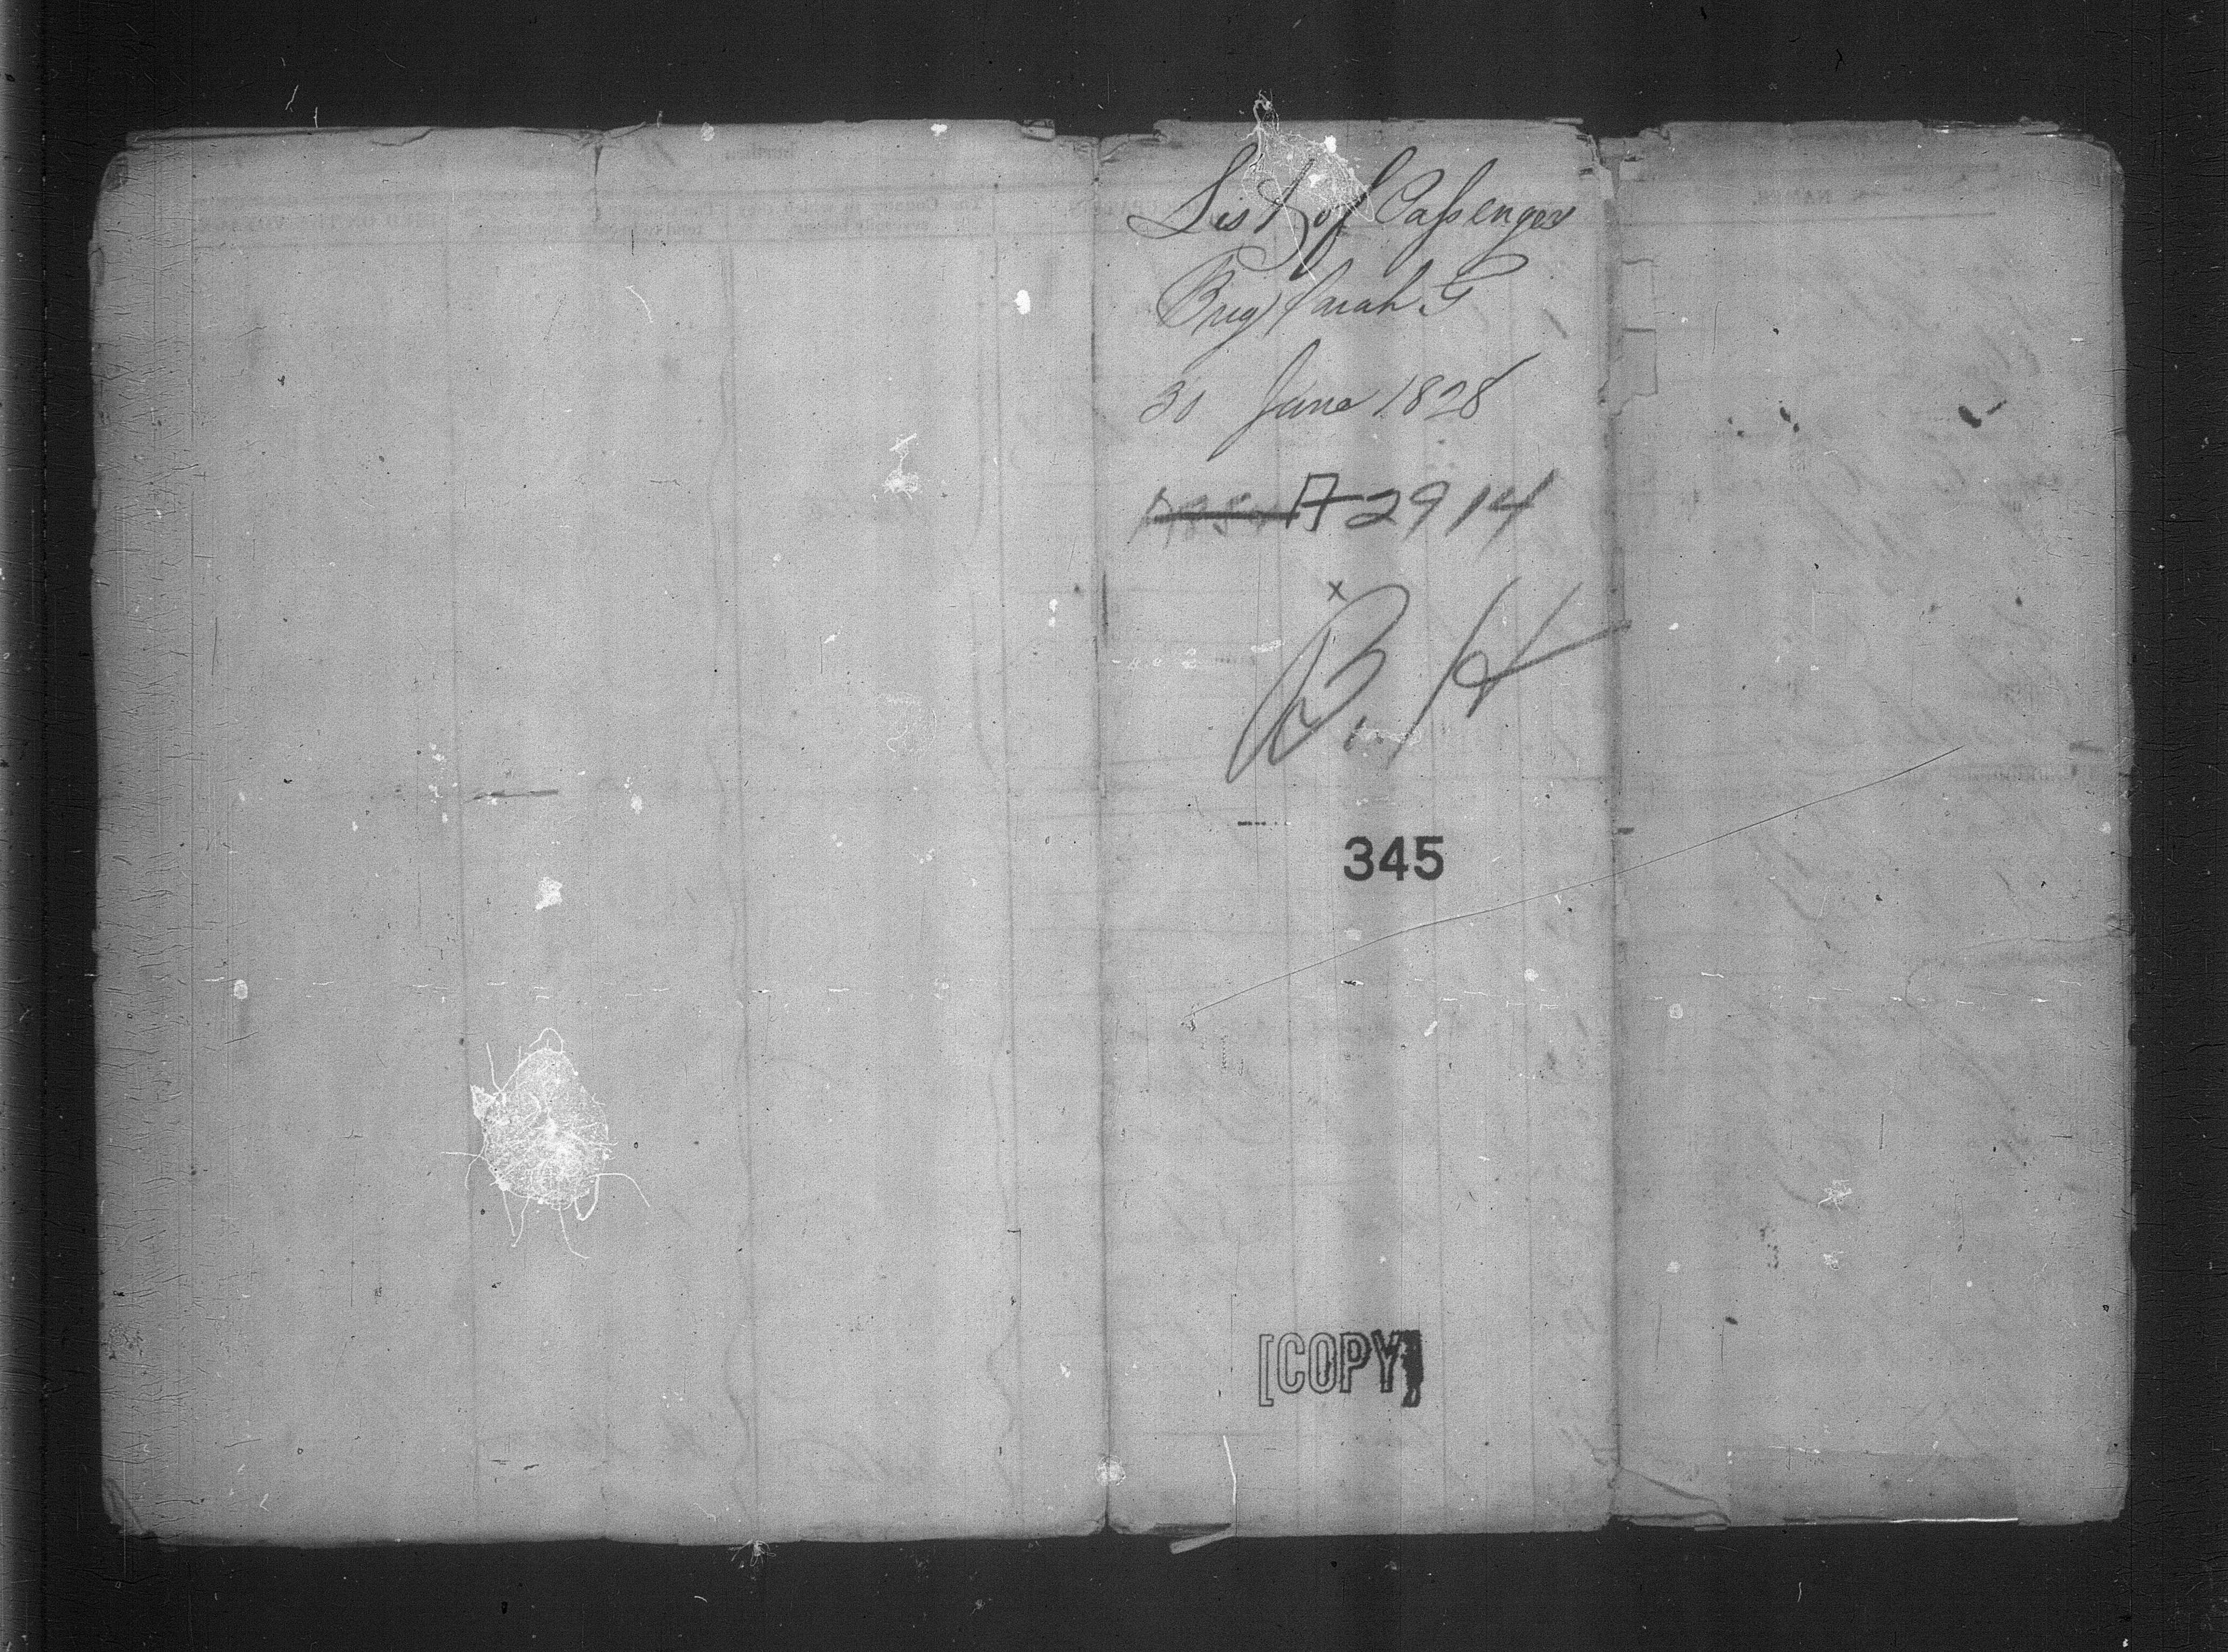 List of Passenger
Brig Sarah G
30 June 1828
A 2914
x
B. H
345
[COPY]